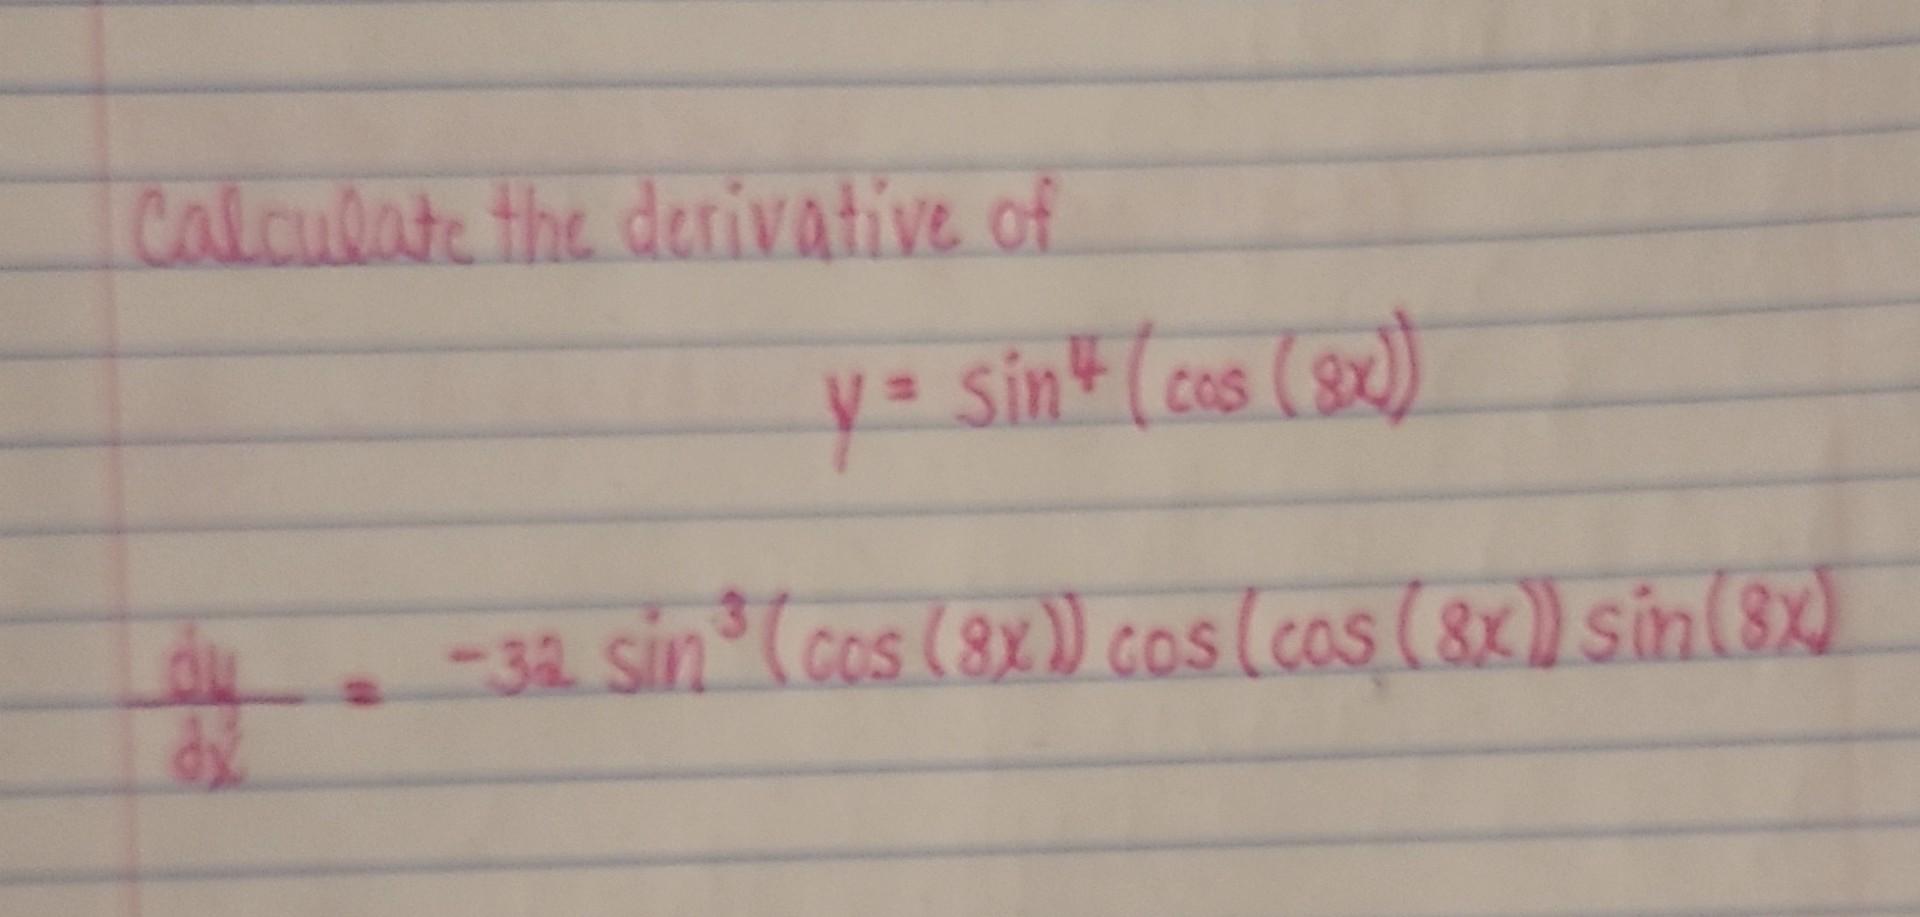 Calculate the derivative of
y = sin⁴(cos(8x))
dy/dx = -32 sin³(cos(8x)) cos(cos(8x)) sin(8x)